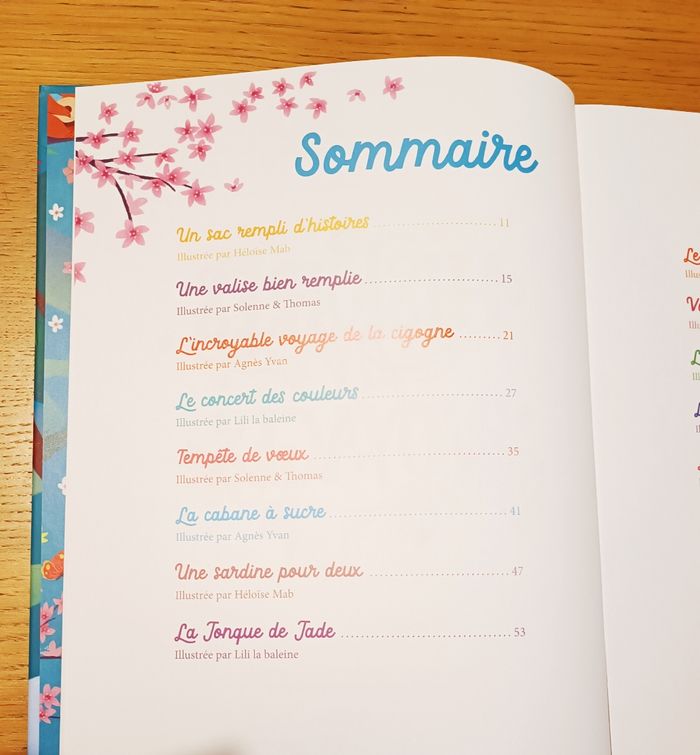 Sommaire
Un sac rempli d'histoires ........................ 11
Illustrée par Héloïse Mab
Une valise bien remplie ........................ 15
Illustrée par Solenne & Thomas
L'incroyable voyage de la cigogne ........ 21
Illustrée par Agnès Yvan
Le concert des couleurs ........................ 27
Illustrée par Lili la baleine
Tempête de vœux ........................ 35
Illustrée par Solenne & Thomas
La cabane à sucre ........................ 41
Illustrée par Agnès Yvan
Une sardine pour deux ........................ 47
Illustrée par Héloïse Mab
La Jonque de Jade ........................ 53
Illustrée par Lili la baleine
Le